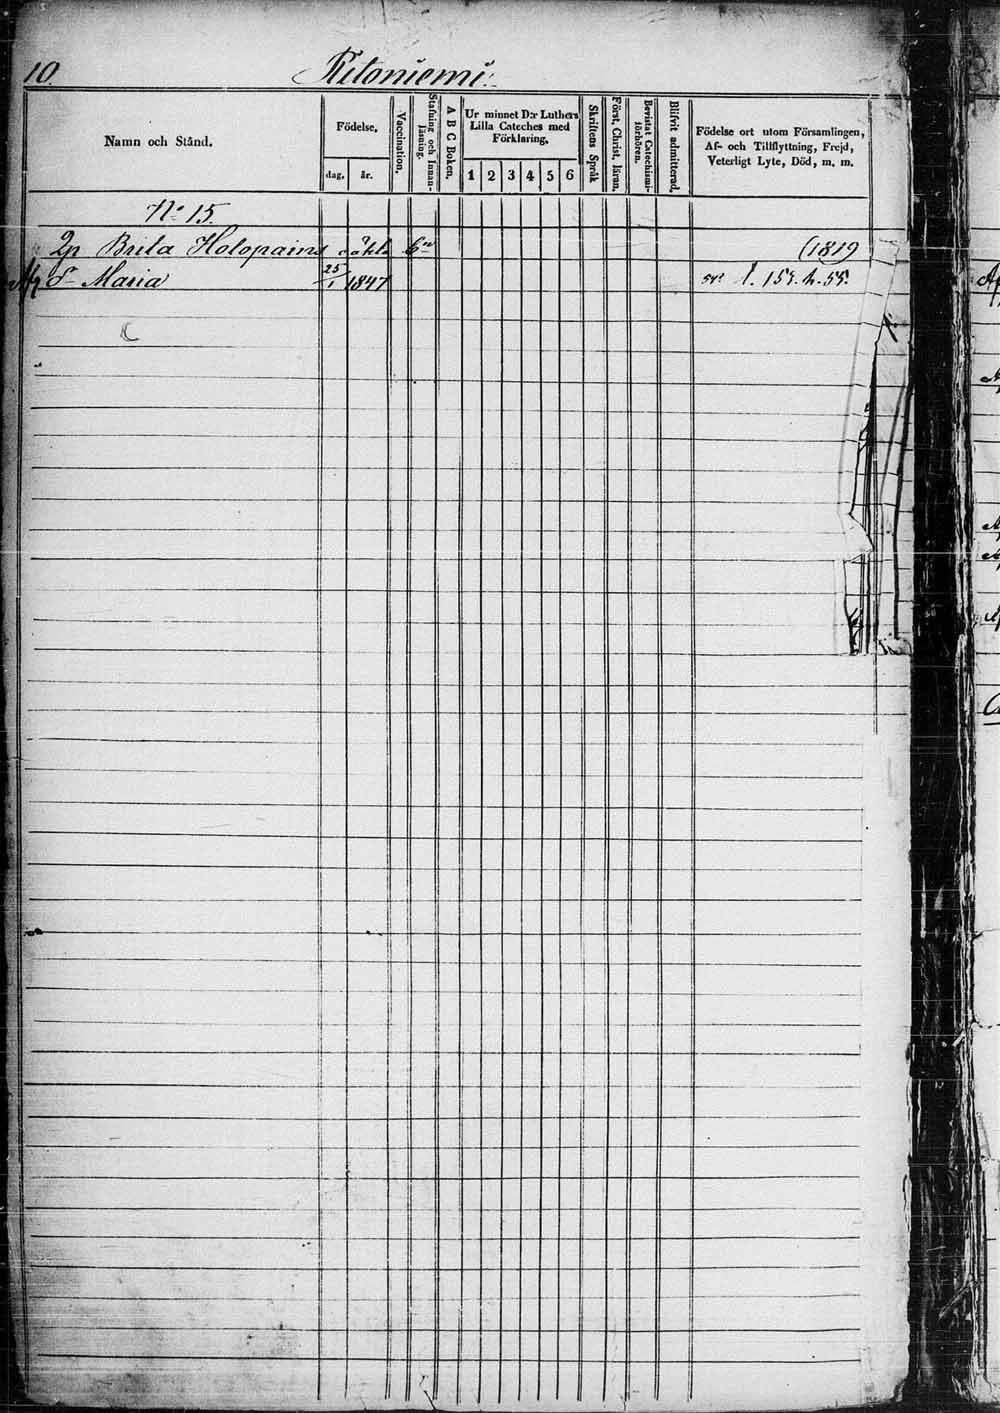 10.
Ritoniemi.
Namn och Stånd.
Födelse,
dag.
år.
Vaccination.
Stafning och Innan-
läsning.
A B C Boken.
Ur minnet D:r Luthers
Lilla Cateches med
Förklaring.
1 2 3 4 5 6
Skriftens Språk
Först. Christ. läran.
Bevistat Catechismi-
förhören.
Blifvit admitterad.
Födelse ort utom Församlingen,
Af- och Tillflyttning, Frejd,
Veterligt Lyte, Död, m. m.
No 15.
Brita Holopain oäkta 6 (1819
Maria 25/1 1847 l. 159. h. 55.